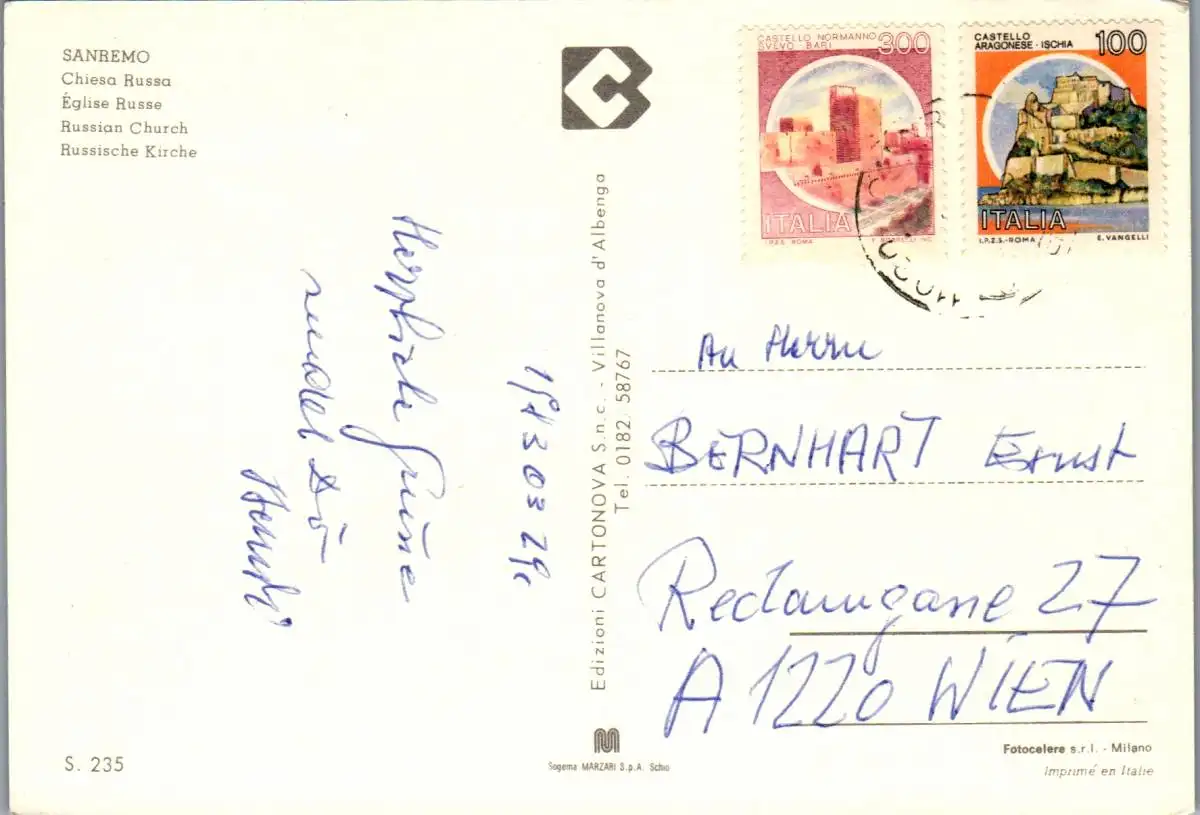 SANREMO
Chiesa Russa
Église Russe
Russian Church
Russische Kirche
Herzliche Grüße
sendet Dir
S. 235
Edizioni CARTONOVA S.n.c. - Villanova d'Albenga
Tel. 0182. 58767
Sogema MARZARI S.p.A. Schio
CASTELLO NORMANNO
SVEVO - BARI 300
ITALIA
I.P.Z.S. ROMA
CASTELLO
ARAGONESE - ISCHIA 100
ITALIA
I.P.Z.S. - ROMA E. VANGELLI
An Herrn
BERNHART Ernst
Reclamgasse 27
A 1220 WIEN
Fotocelere s.r.l. - Milano
Imprimé en Italie